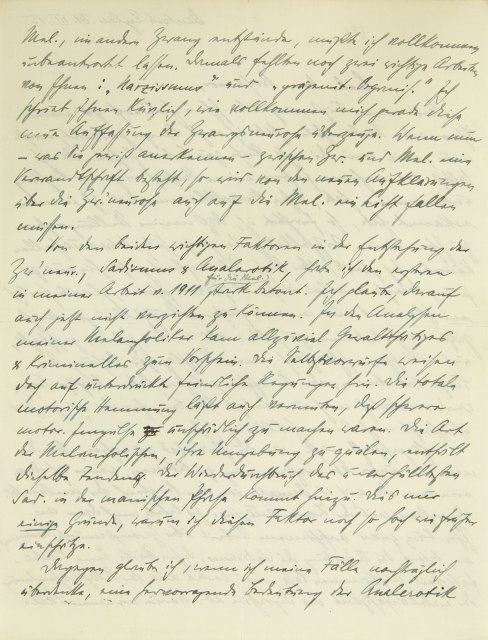 Mel., im andern Zwang entstünde, mußte ich vollkommen
unbeantwortet lassen. Damals fehlten noch zwei wichtige Arbeiten
von Ihnen: „Narzissmus“ und „prägenit. Organis.“ Ich
schrieb Ihnen kürzlich, wie vollkommen mich gerade diese
neue Auffassung der Zwangsneurose überzeuge. Wenn nun
– was Sie gewiß anerkennen – zwischen Zw. und Mel. eine
Verwandtschaft besteht, so wird von den neuen Aufklärungen
über die Zw'neurose auch auf die Mel. ein Licht fallen
müssen.
Von den beiden wichtigen Faktoren in der Entstehung der
Zw'neur., Sadismus & Analerotik, habe ich den ersteren
in meiner Arbeit v. 1911 für die Mel. stark betont. Ich glaube, darauf
auch jetzt nicht verzichten zu können. In den Analysen
meiner Melancholiker kam allzuviel Gewalttätiges
& Kriminelles zum Vorschein. Die Selbstvorwürfe weisen
doch auf unterdrückte feindliche Regungen hin. Die totale
motorische Hemmung läßt auch vermuten, daß schwere
motor. Impulse unschädlich zu machen waren. Die Art
der Melancholischen, ihre Umgebung zu quälen, enthält
dieselbe Tendenz. Der Wiederdurchbruch des unverhülltesten
Sad. in der manischen Phase kommt hinzu. Dies nur
einige Gründe, warum ich diesen Faktor noch so hoch wie früher
einschätze.
Dagegen glaube ich, wenn ich meine Fälle nachträglich
überdenke, eine hervorragende Bedeutung der Analerotik